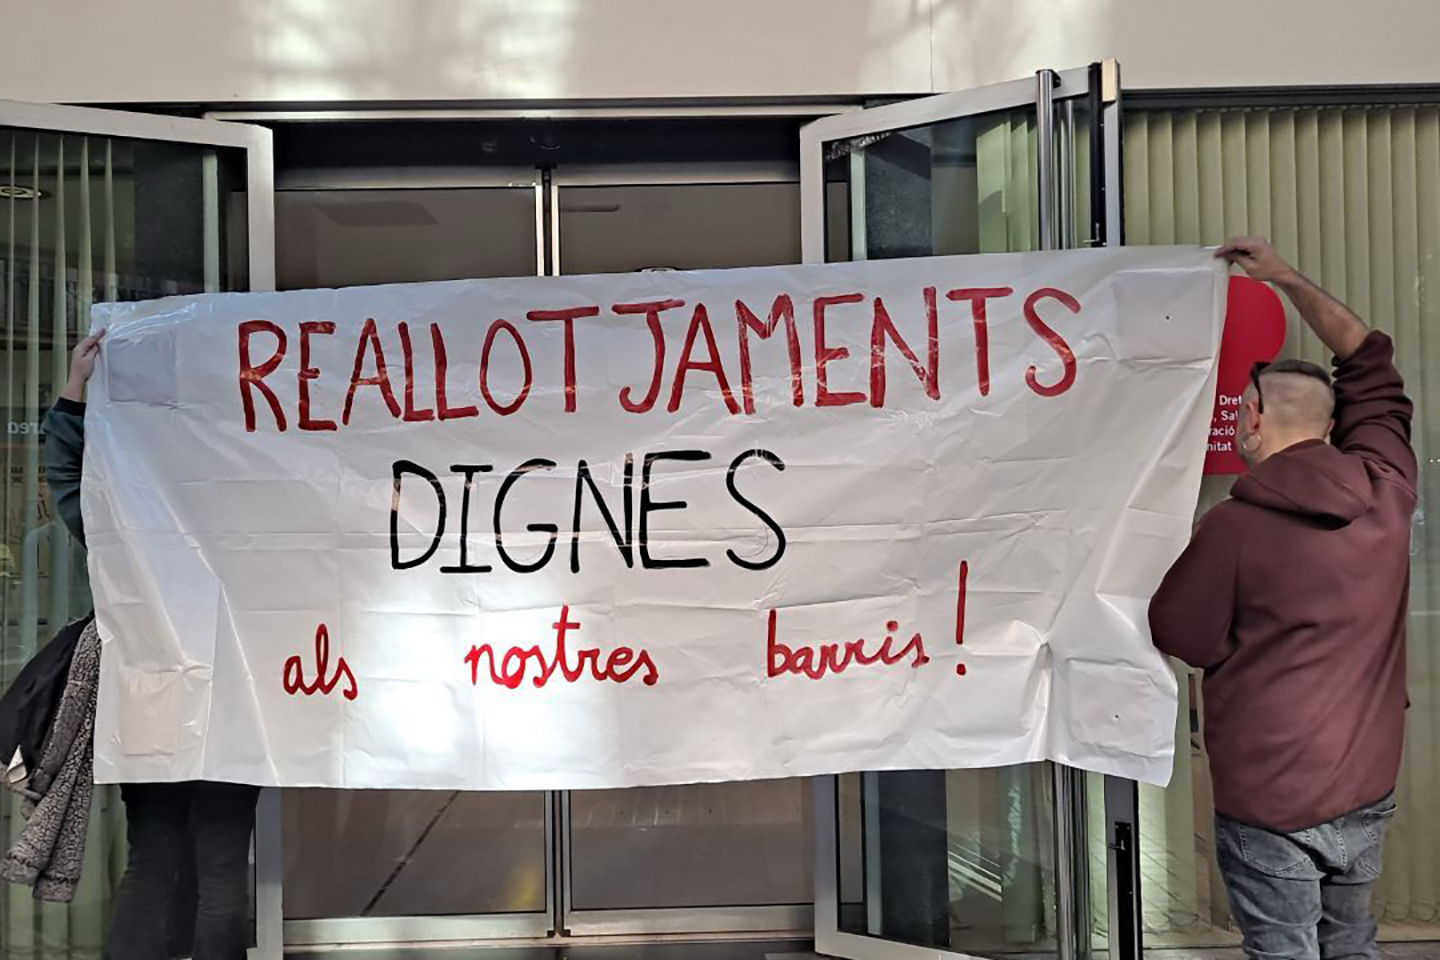 REALLOTJAMENTS
DIGNES
als nostres barris!
Dret
, Sal
ració
nitat